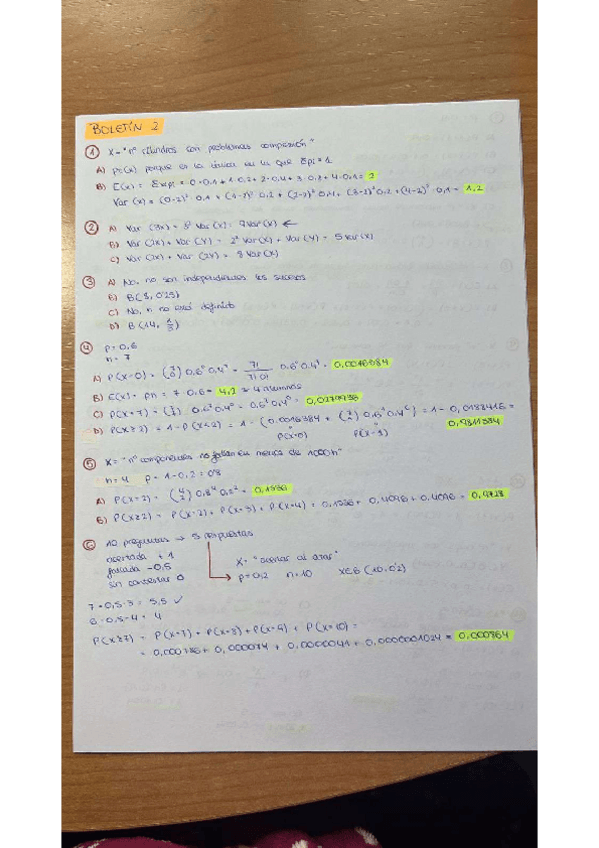 BOLETÍN 2
① X = "nº cilindros con problemas compresión"
A) p=(x) porque es la única en la que Σpi = 1
B) E(x) = Σxipi = 0·0.1 + 1·0.2 + 2·0.4 + 3·0.2 + 4·0.1 = 2
Var (x) = (0-2)²·0.1 + (1-2)²·0.2 + (2-2)²·0.4 + (3-2)²·0.2 + (4-2)²·0.1 = 1,2
② A) Var (3x) = 3² Var (x) = 9 Var (x) ←
B) Var (2x) + Var (Y) = 2² Var (x) + Var (Y) = 5 Var (x)
C) Var (2x) + Var (2Y) = 8 Var (x)
③ A) No, no son independientes los sucesos
B) B(3, 0'25)
C) No, n no está definido
D)
④ p = 0,6
n = 7
A) P(x=0) = (7 0) 0.6⁰ 0.4⁷ = 7!/7!0! 0.6⁰ 0.4⁷ = 0,0016384
B) E(x) = pn = 7·0.6 = 4,2 ≈ 4 alumnos
C) P(x=7) = (7 7) 0.6⁷ 0.4⁰ = 0.6⁷ 0.4⁰ = 0,0279936
D) P(x≥2) = 1 - P(x<2) = 1 - (0.0016384 + (7 1) 0.6¹ 0.4⁶) = 1 - 0,0188416 =
P(x=0) P(x=1) 0,9811584
⑤ X = "nº componentes no fallan en menos de 1000h"
n = 4 p = 1-0,2 = 0'8
A) P(x=2) = (4 2) 0,8² 0,2² = 0,1536
B) P(x≥2) = P(x=2) + P(x=3) + P(x=4) = 0,1536 + 0,4096 + 0,4096 = 0,9728
⑥ 10 preguntas → 5 respuestas
acertada +1
fallada -0,5 X = "acertar al azar"
sin contestar 0 p = 0,2 n = 10 X∈B (10, 0'2)
7 - 0,5·3 = 5,5 ✓
6 - 0,5·4 = 4
P(x≥7) = P(x=7) + P(x=8) + P(x=9) + P(x=10) =
= 0,000786 + 0,000074 + 0,0000041 + 0,0000001024 = 0,000864